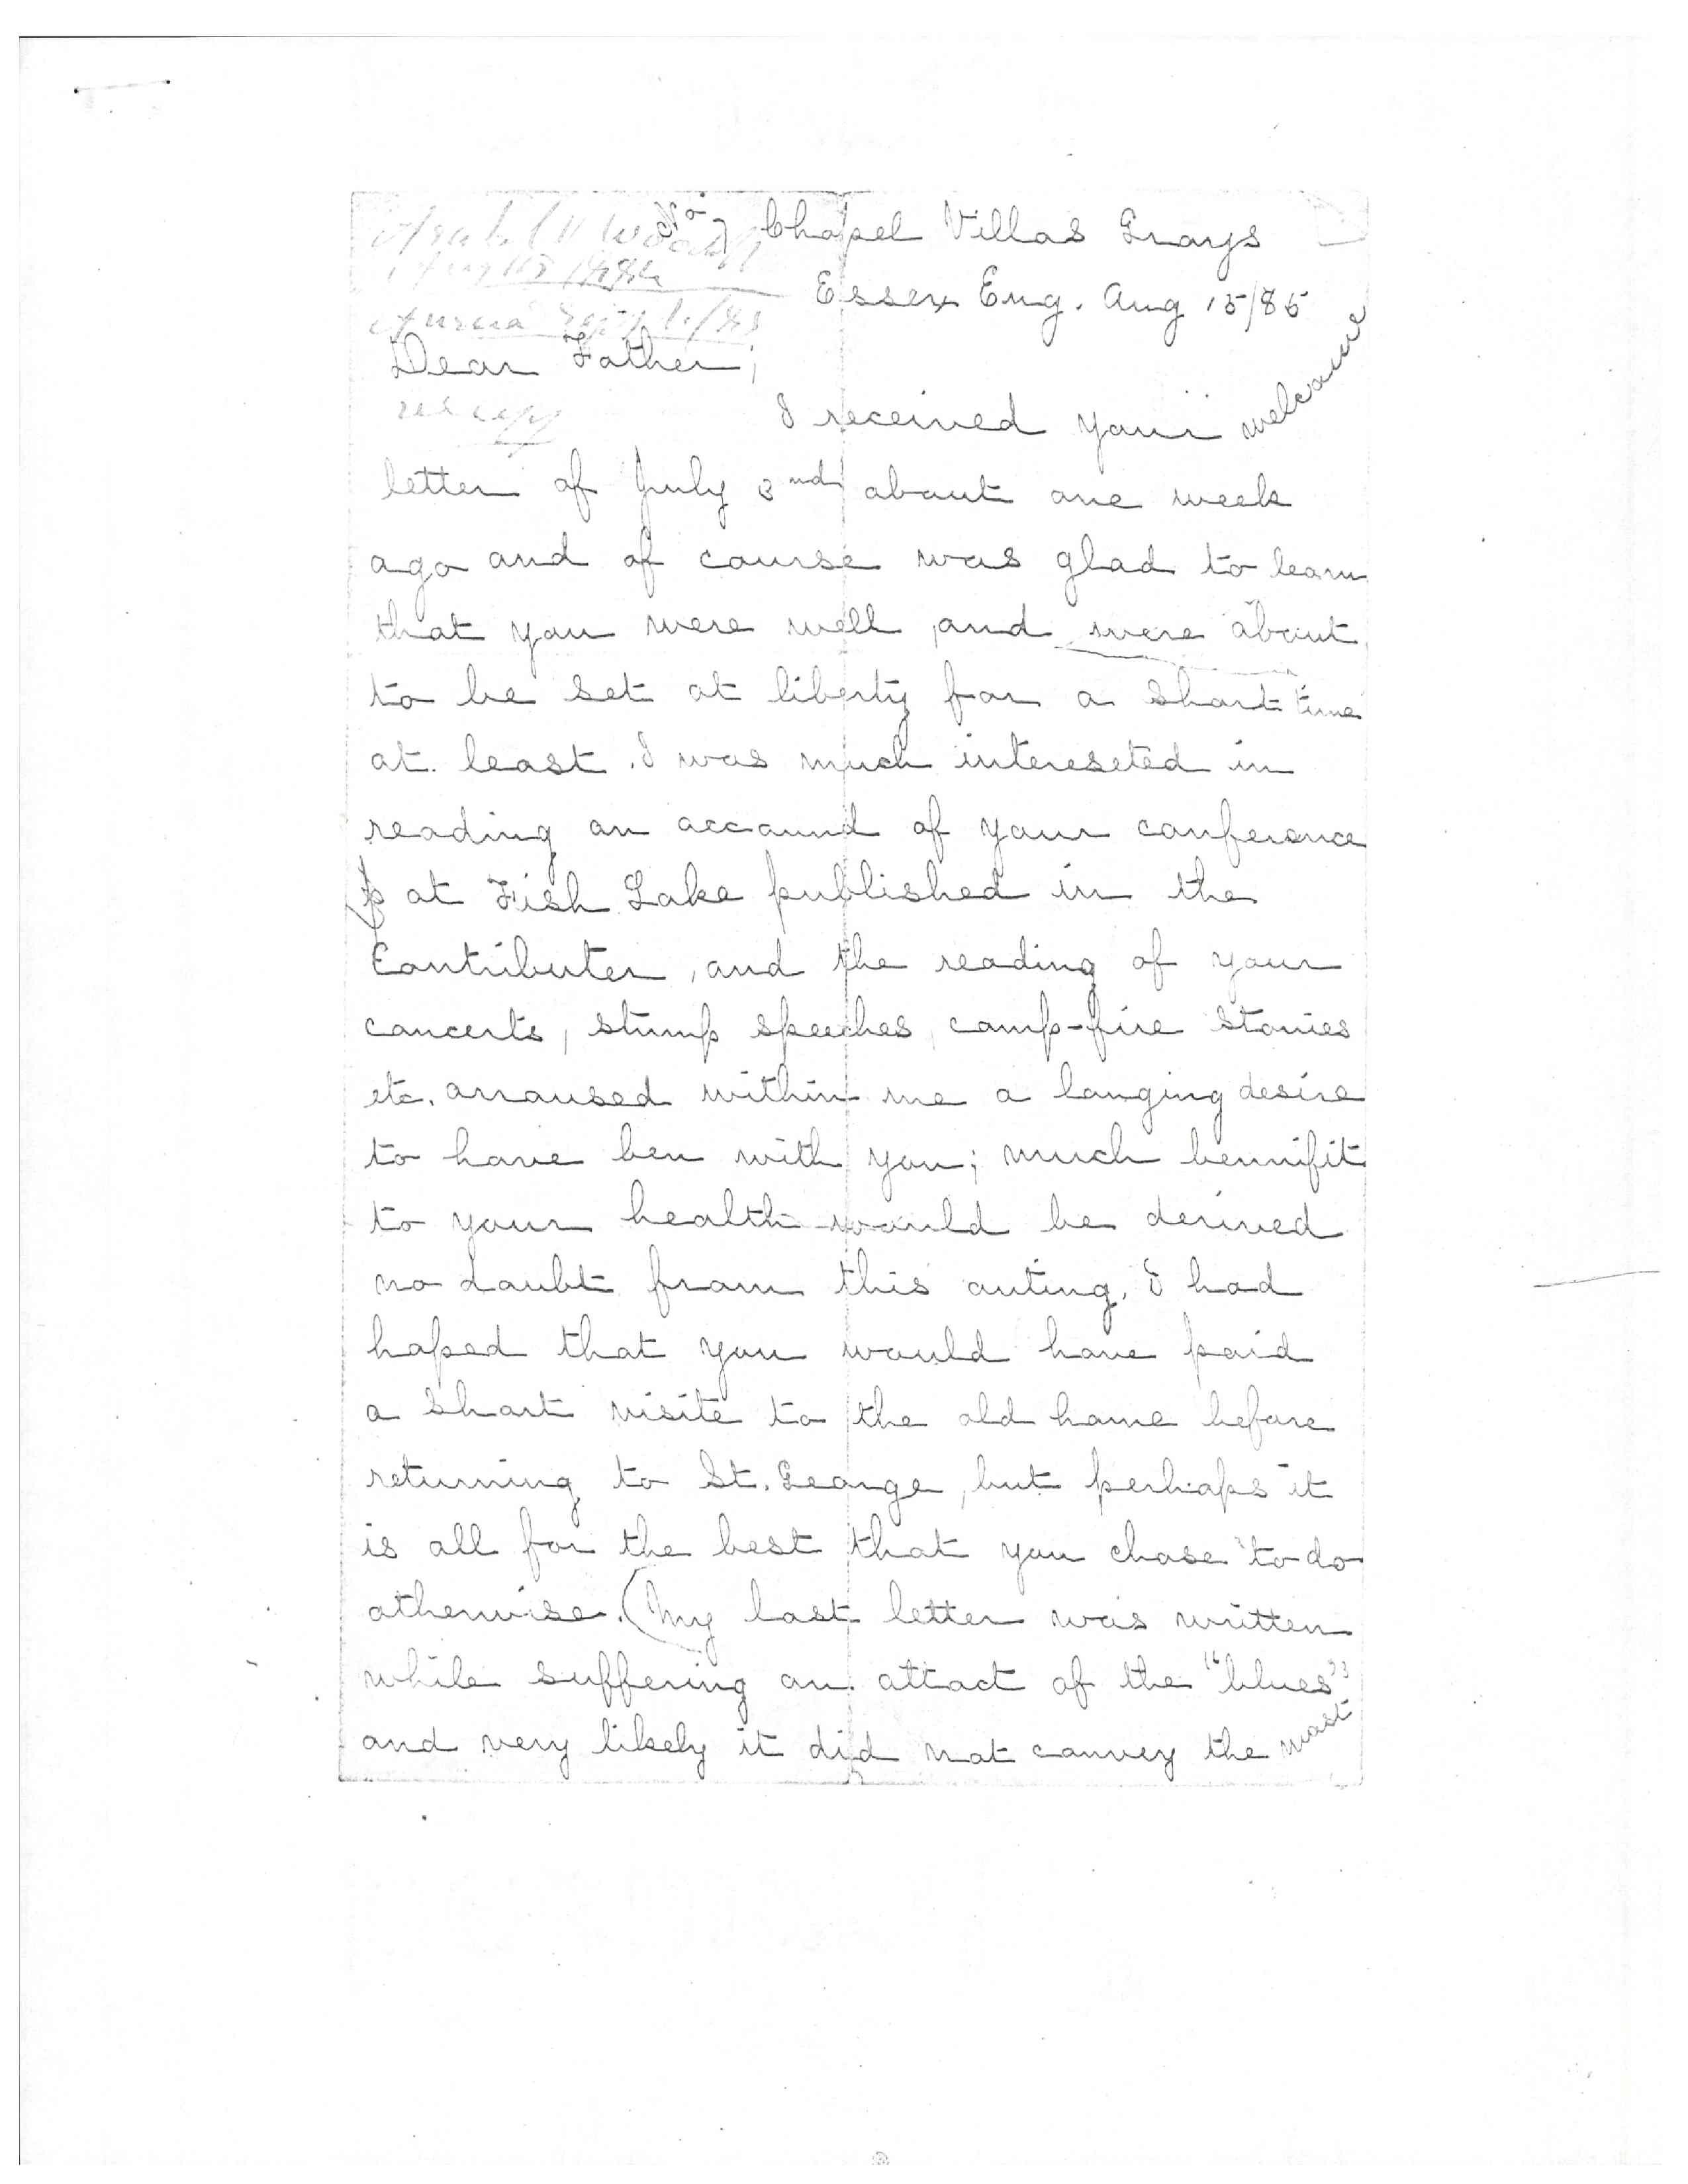 No 7 Chapel Villas Grays
Essex Eng. Aug 15/85
Dear Father;
I received your welcome
letter of July 3nd about one week
ago and of course was glad to learn
that you were well, and were about
to be set at liberty for a short time
at least. I was much intereseted in
reading an accound of your conference
at Fish Lake published in the
Contributer, and the reading of your
concerts, stump speeches, camp-fire stories
etc. arroused within me a longing desire
to have ben with you; much bennifit
to your health would be derived
no doubt from this outing. I had
hoped that you would have paid
a short visite to the old home before
returning to St. George, but perhaps it
is all for the best that you chose to do
otherwise. (My last letter was written
while suffering an attact of the "blues"
and very likely it did not convey the most